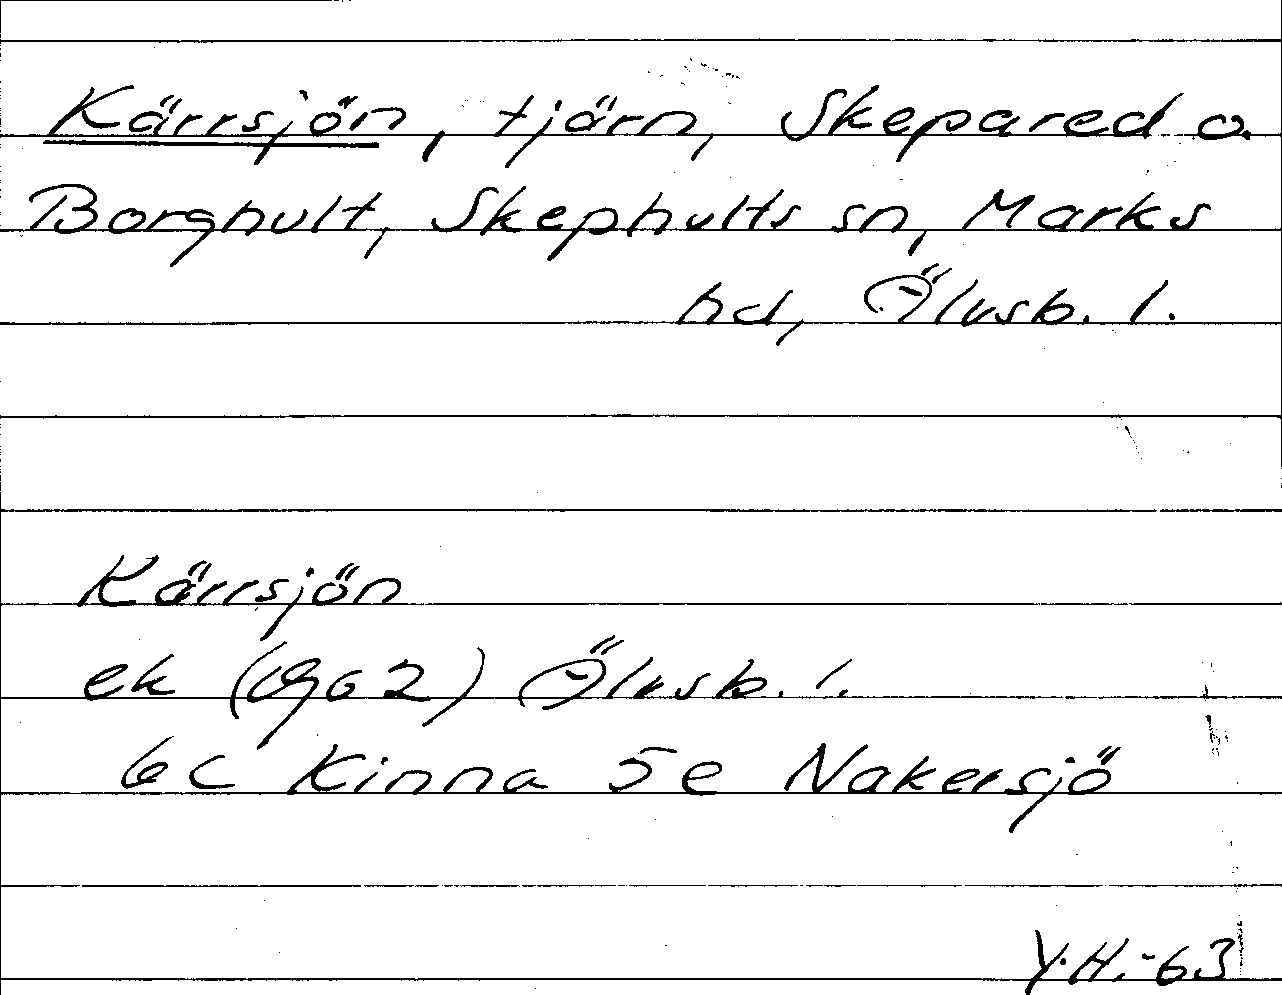 Kärrsjön, tjärn, Skepared o.
Borghult, Skephults sn, Marks
hd, Älvsb. l.
Kärrsjön
ek (1962) Älvsb. l.
6C Kinna 5e Nakersjö
Y.H.-63